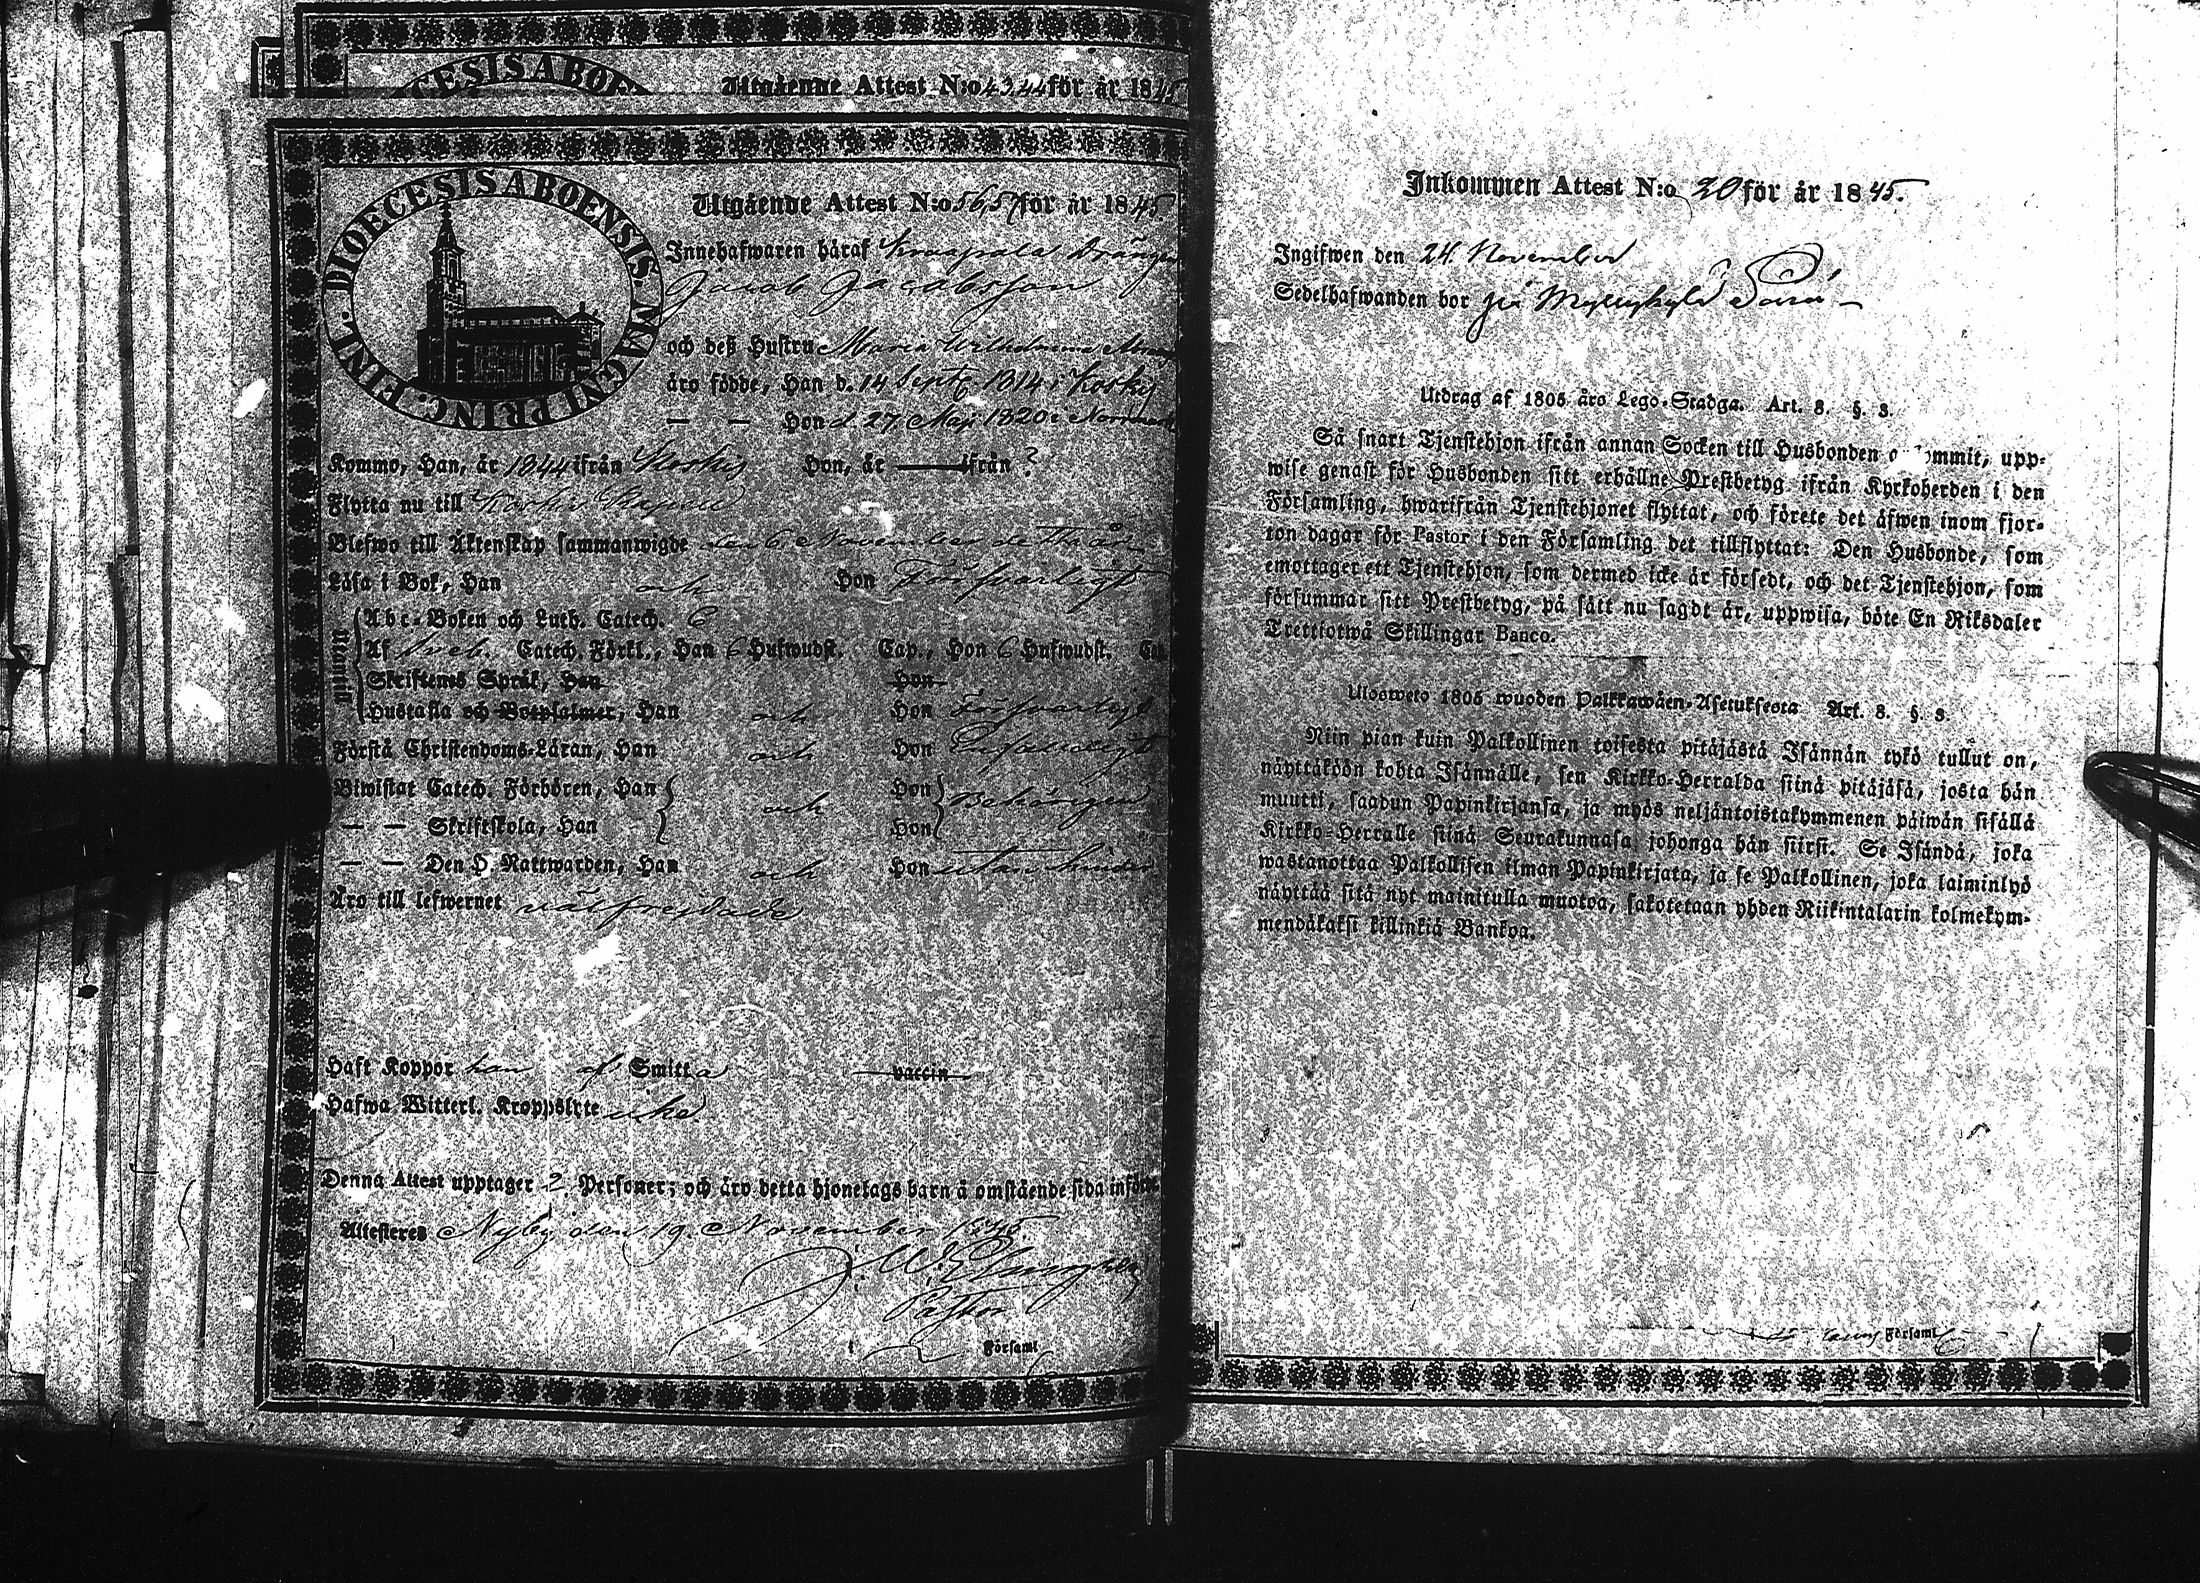 DIOECESIS ABOE
Utgående Attest N:o 43,44 för år 1845
FINL. DIOECESIS ABOENSIS. MAGNI PRINC.
Utgående Attest N:o 56,57 för år 1845.
Innehafwaren håraf Drängen
Jacob Jacobsson
och deß Hustru Maria Wilhelmina
äro födde, Han d. 14 Sept. 1814 i Koskis
— — Hon d. 27 Maji 1820 i Norrmark
Kommo, Han, år 1844 ifrån Koskis Hon, år — ifrån ?
Flytta nu till Koskis Kapell
Blefwo till Äktenskap sammanwigde den 6 November detta år
Läsa i Bok, Han och Hon Försvarligt
Utantill
Abc-Boken och Luth. Catech. 6
Af Sveb. Catech. Förkl., Han 6 Hufwudst. Cap., Hon 6 Hufwudst. Cap.
Skriftens Språk, Han Hon
Hustafla och Botpsalmer, Han och Hon Försvarligt
Förstå Christendoms-Läran, Han och Hon Enfaldigt
Biwistat Catech. Förhören, Han och Hon Behörigen
— — Skriftskola, Han Hon
— — Den H. Nattwarden, Han och Hon utan hinder
Äro till lefwernet välfrejdade
Haft Koppor han af Smitta vaccin
Hafwa Witterl. Kroppslyte icke.
Denna Attest upptager 2 Personer; och äro detta hjonelags barn å omstående sida införde.
Attesteras Nyby den 19 November 1845.
Pastor
i Församl.
Inkommen Attest N:o 20 för år 1845.
Ingifwen den 24. November
Sedelhafwanden bor på
Utdrag af 1805 års Lego-Stadga. Art. 8. §. 3.
Så snart Tjenstehjon ifrån annan Socken till Husbonden ommit, upp-
wise genast för Husbonden sitt erhållne Prestbetyg ifrån Kyrkoherden i den
Församling, hwarifrån Tjenstehjonet flyttat, och förete det äfwen inom fjor-
ton dagar för Pastor i den Församling det tillflyttat: Den Husbonde, som
emottager ett Tjenstehjon, som dermed icke är försedt, och det Tjenstehjon, som
försummar sitt Prestbetyg, på sätt nu sagdt är, uppwisa, böte En Riksdaler
Trettiotwå Skillingar Banco.
Ulosweto 1805 wuoden Palkkawäen-Asetuksesta Art. 8. §. 3.
Niin pian kuin Palkollinen toisesta pitäjästä Isännän tykö tullut on,
näyttäköön kohta Isännälle, sen Kirkko-Herralda siinä pitäjäsä, josta hän
muutti, saadun Papinkirjansa, ja myös neljäntoistakymmenen päiwän sisällä
Kirkko-Herralle siinä Seurakunnasa johonga hän siirsi. Se Isändä, joka
wastanottaa Palkollisen ilman Papinkirjata, ja se Palkollinen, joka laiminlyö
näyttää sitä nyt mainitulla muotoa, sakotetaan yhden Riikintalarin kolmekym-
mendäkaksi killinkiä Bankoa.
Församl.